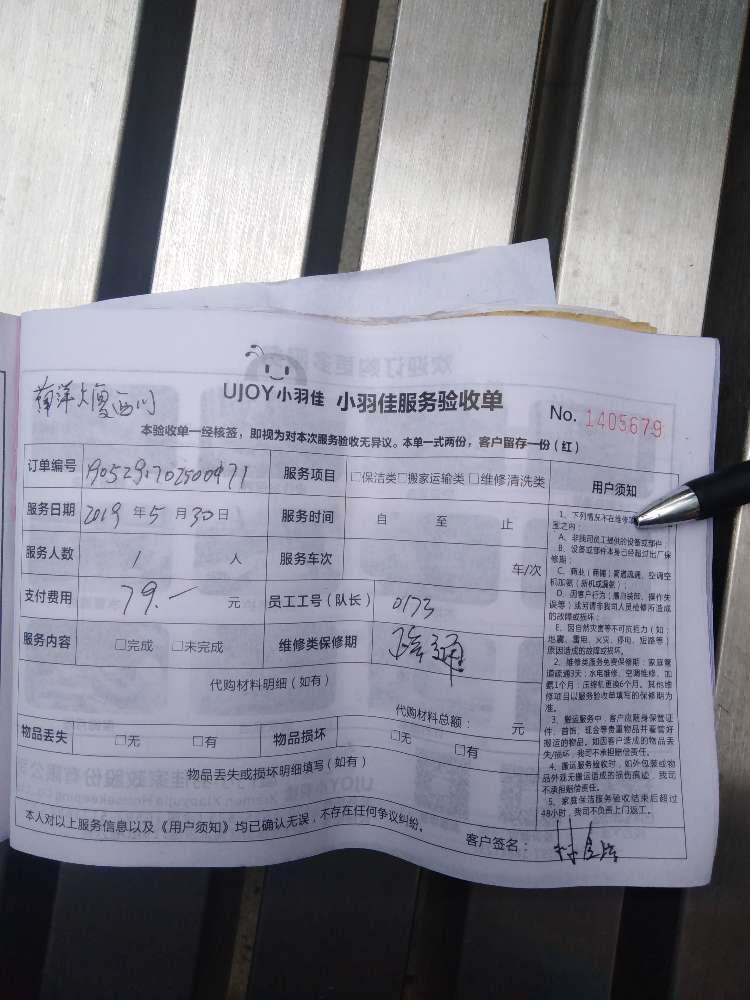 UJOY小羽佳 小羽佳服务验收单 No. 1405679
大厦西门
本验收单一经核签，即视为对本次服务验收无异议。本单一式两份，客户留存一份（红）
订单编号 1905291702500971 服务项目 □保洁类□搬家运输类□维修清洗类
服务日期 2019 年 5 月 30 日 服务时间 自 至 止
服务人数 1 人 服务车次 车/次
支付费用 79.— 元 员工工号（队长） 0173
服务内容 □完成 □未完成 维修类保修期 疏通
代购材料明细（如有）
代购材料总额： 元
物品丢失 □无 □有 物品损坏 □无 □有
物品丢失或损坏明细填写（如有）
本人对以上服务信息以及《用户须知》均已确认无误，不存在任何争议纠纷。
客户签名：
用户须知
1、下列情况不在维修
围之内：
A、非我司员工提供的设备或部件；
B、设备或部件本身已经超过出厂保
修期；
C、商业（商铺）管道疏通、空调空
机加氨（新机或漏氨）；
D、因客户行为（擅自装卸、操作失
误等）或另请非我司人员检修所造成
的故障或损坏；
E、因自然灾害等不可抗拒力（如：
地震、雷电、火灾、停电、短路等）
原因造成的故障或损坏。
2、维修类服务免费保修期：家庭管
道疏通3天；水电维修、空调维修、加
氨1个月；压缩机更换6个月。其他维
修项目以服务验收单填写的保修期为
准。
3、搬运服务中，客户应随身保管证
件、首饰、现金等贵重物品并看管好
搬运的物品。如因客户造成的物品丢
失/损坏，我司不承担赔偿责任。
4、搬运服务验收时，如外包装或物
品外观无搬运造成的损伤痕迹，我司
不承担赔偿责任。
5、家庭保洁服务验收结束后超过
48小时，我司不负责上门返工。